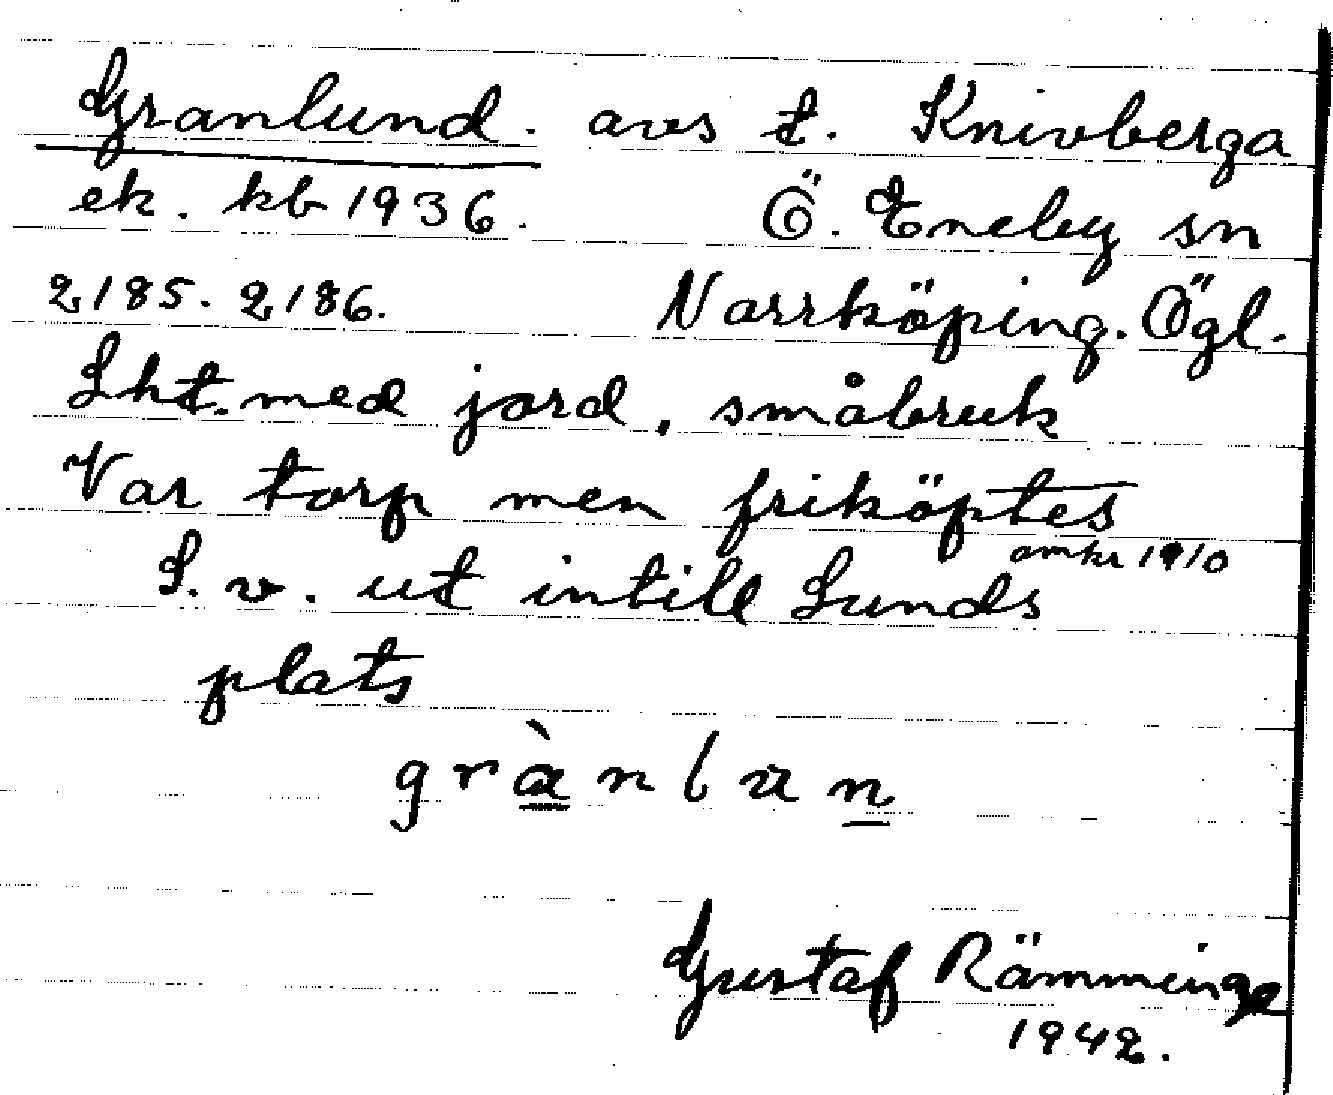 Granlund. avs t. Knivberga
ek. kb 1936. Ö. Eneby sn
2185. 2186. Norrköping. Ögl.
Lht. med jord, småbruk
Var torp men friköptes
omkr 1910
S. v. ut intill Lunds
plats
grànlun
Gustaf Rämminge
1942.